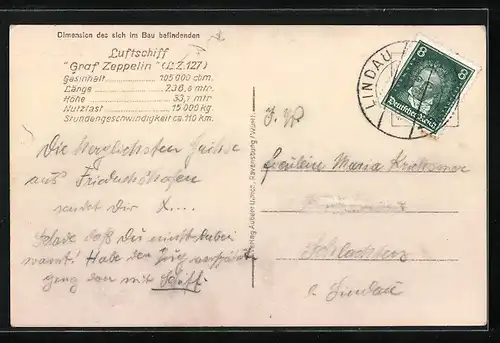 Dimension des sich im Bau befindenden
Luftschiff
"Graf Zeppelin" (L.Z.127)
Gasinhalt 105 000 cbm.
Länge 236,6 mtr.
Höhe 33,7 mtr.
Nutzlast 15 000 kg.
Stundengeschwindigkeit ca. 110 km.
Die herzlichsten Grüsse
aus Friedrichshafen
sendet Dir X....
Schade daß Du nicht dabei
warst! Habe den Zug
mit Schiff.
Verlag Ravensburg (Württ.)
LINDAU
8 8
Deutsches Reich
Fräulein Maria
Schlachters
b. Lindau